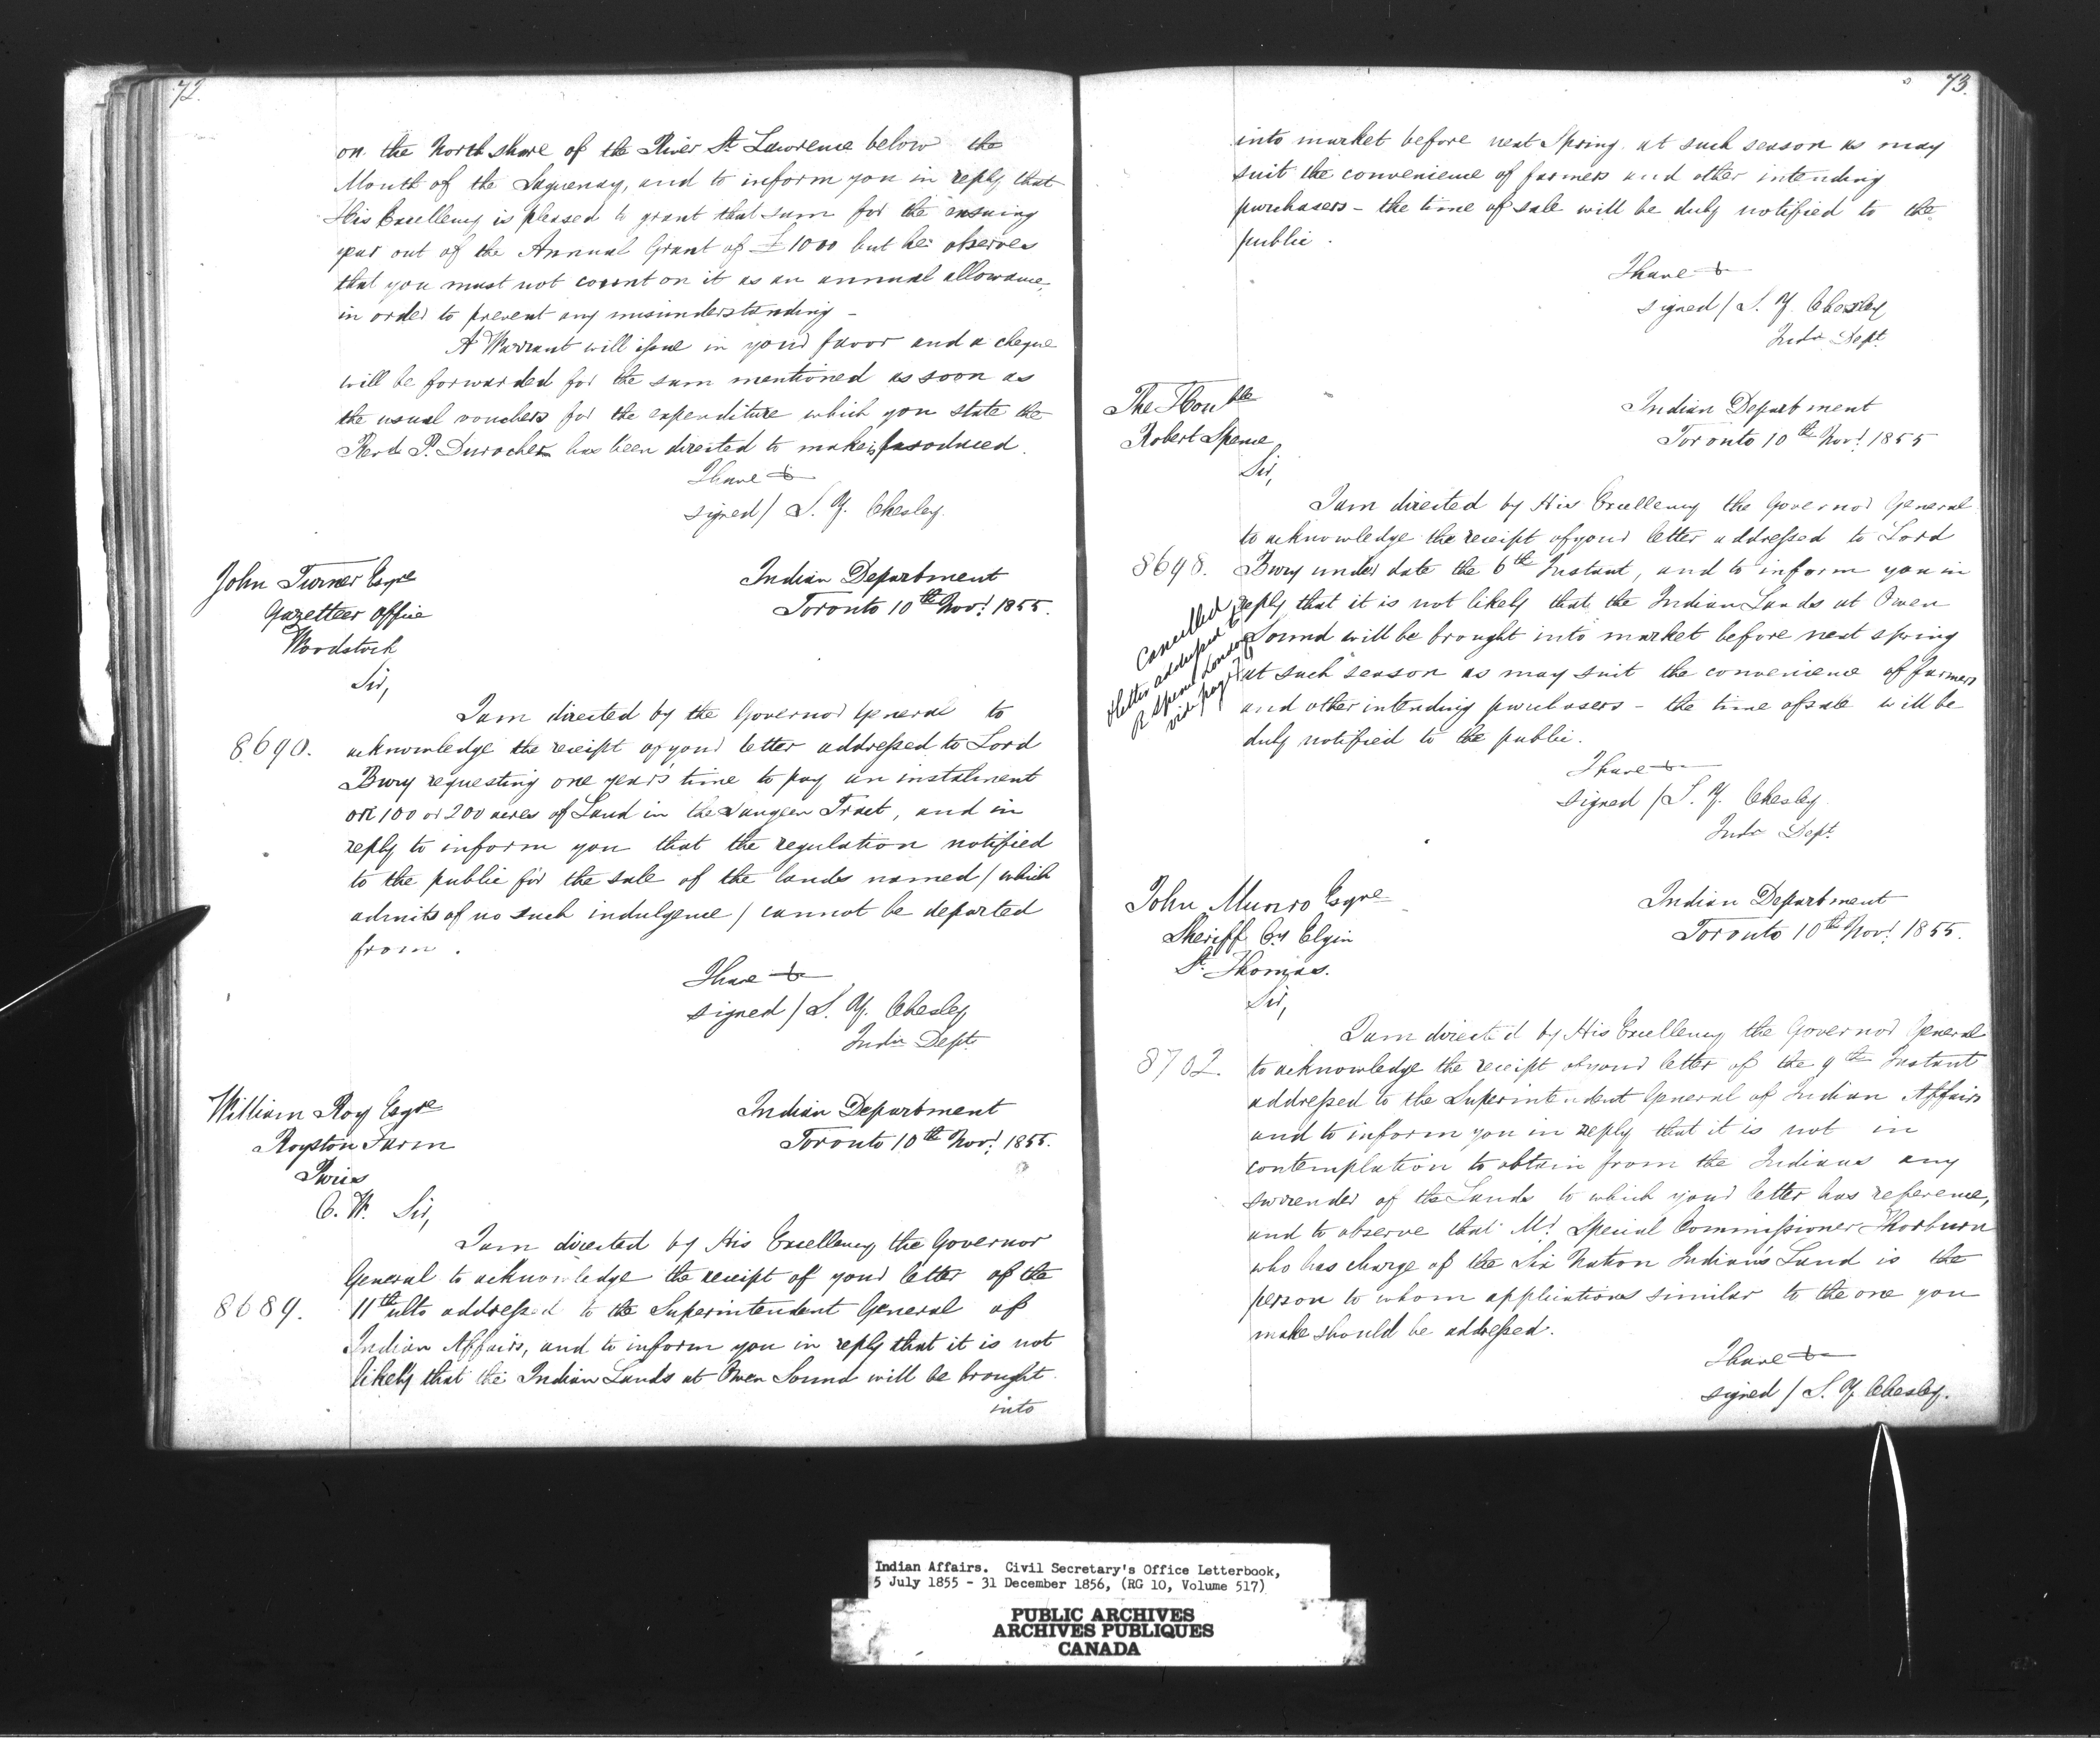 72.
on the North shore of the River St Lawrence below the
Mouth of the Saguenay, and to inform you in reply that
His Excellency is pleased to grant that sum for the ensuing
year out of the Annual Grant of £1000 but he observes
that you must not count on it as an annual allowance,
in order to prevent any misunderstanding –
A Warrant will issue in your favor and a cheque
will be forwarded for the sum mentioned as soon as
the usual vouchers for the expenditure which you state the
Revd P. Durocher has been directed to make is produced.
I have &
signed / S. Y. Chesley.
John Turner Esqre
Gazetteer Office
Woodstock
Indian Department
Toronto 10th Novr 1855.
Sir,
I am directed by the Governor General to
8690. acknowledge the receipt of your letter addressed to Lord
Bury requesting one year's time to pay an instalment
on 100 or 200 acres of Land in the Saugeen Tract, and in
reply to inform you that the regulation notified
to the public for the sale of the lands named / which
admits of no such indulgence / cannot be departed
from.
I have &
signed / S. Y. Chesley
Indn Dept
William Roy Esqre
Royston Farm
Paris
C. W. Sir,
Indian Department
Toronto 10th Novr 1855.
I am directed by His Excellency the Governor
General to acknowledge the receipt of your letter of the
8689. 11th ulto addressed to the Superintendent General of
Indian Affairs, and to inform you in reply that it is not
likely that the Indian Lands at Owen Sound will be brought
into
73.
into market before next Spring at such season as may
suit the convenience of farmers and other intending
purchasers – the time of sale will be duly notified to the
public.
I have &
signed / S. Y. Chesley
Indn Dept
The Honble
Robert Spence
Indian Department
Toronto 10th Novr 1855
Sir,
I am directed by His Excellency the Governor General
to acknowledge the receipt of your letter addressed to Lord
8698. Bury under date the 6th Instant, and to inform you in
reply that it is not likely that the Indian Lands at Owen
Sound will be brought into market before next spring
at such season as may suit the convenience of farmers
and other intending purchasers – the time of sale will be
duly notified to the public.
Cancelled
& letter addressed to
R Spence London
vide page 76
I have &
signed / S. Y. Chesley
Indn Dept.
John Munro Esqre
Sheriff Cy Elgin
St. Thomas.
Indian Department
Toronto 10th Novr 1855.
Sir,
I am directed by His Excellency the Governor General
8702. to acknowledge the receipt of your letter of the 9th Instant
addressed to the Superintendent General of Indian Affairs
and to inform you in reply that it is not in
contemplation to obtain from the Indians any
surrender of the Lands to which your letter has reference,
and to observe that Mr Special Commissioner Thorburn
who has charge of the Six Nation Indian's Land is the
person to whom applications similar to the one you
make should be addressed.
I have &
signed / S. Y. Chesley.
Indian Affairs. Civil Secretary's Office Letterbook,
5 July 1855 - 31 December 1856, (RG 10, Volume 517)
PUBLIC ARCHIVES
ARCHIVES PUBLIQUES
CANADA